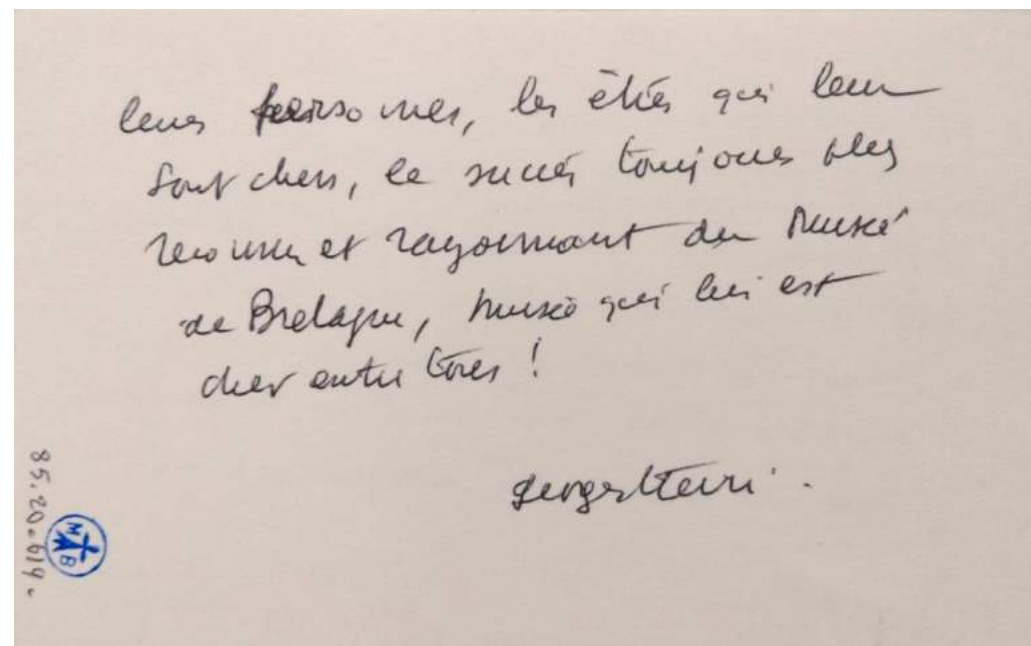 leurs personnes, les êtres qui leur
sont chers, le succès toujours plus
reconnu et rayonnant du Musée
de Bretagne, Musée qui lui est
cher entre tous !
georges henri.
85.20.614.
M B